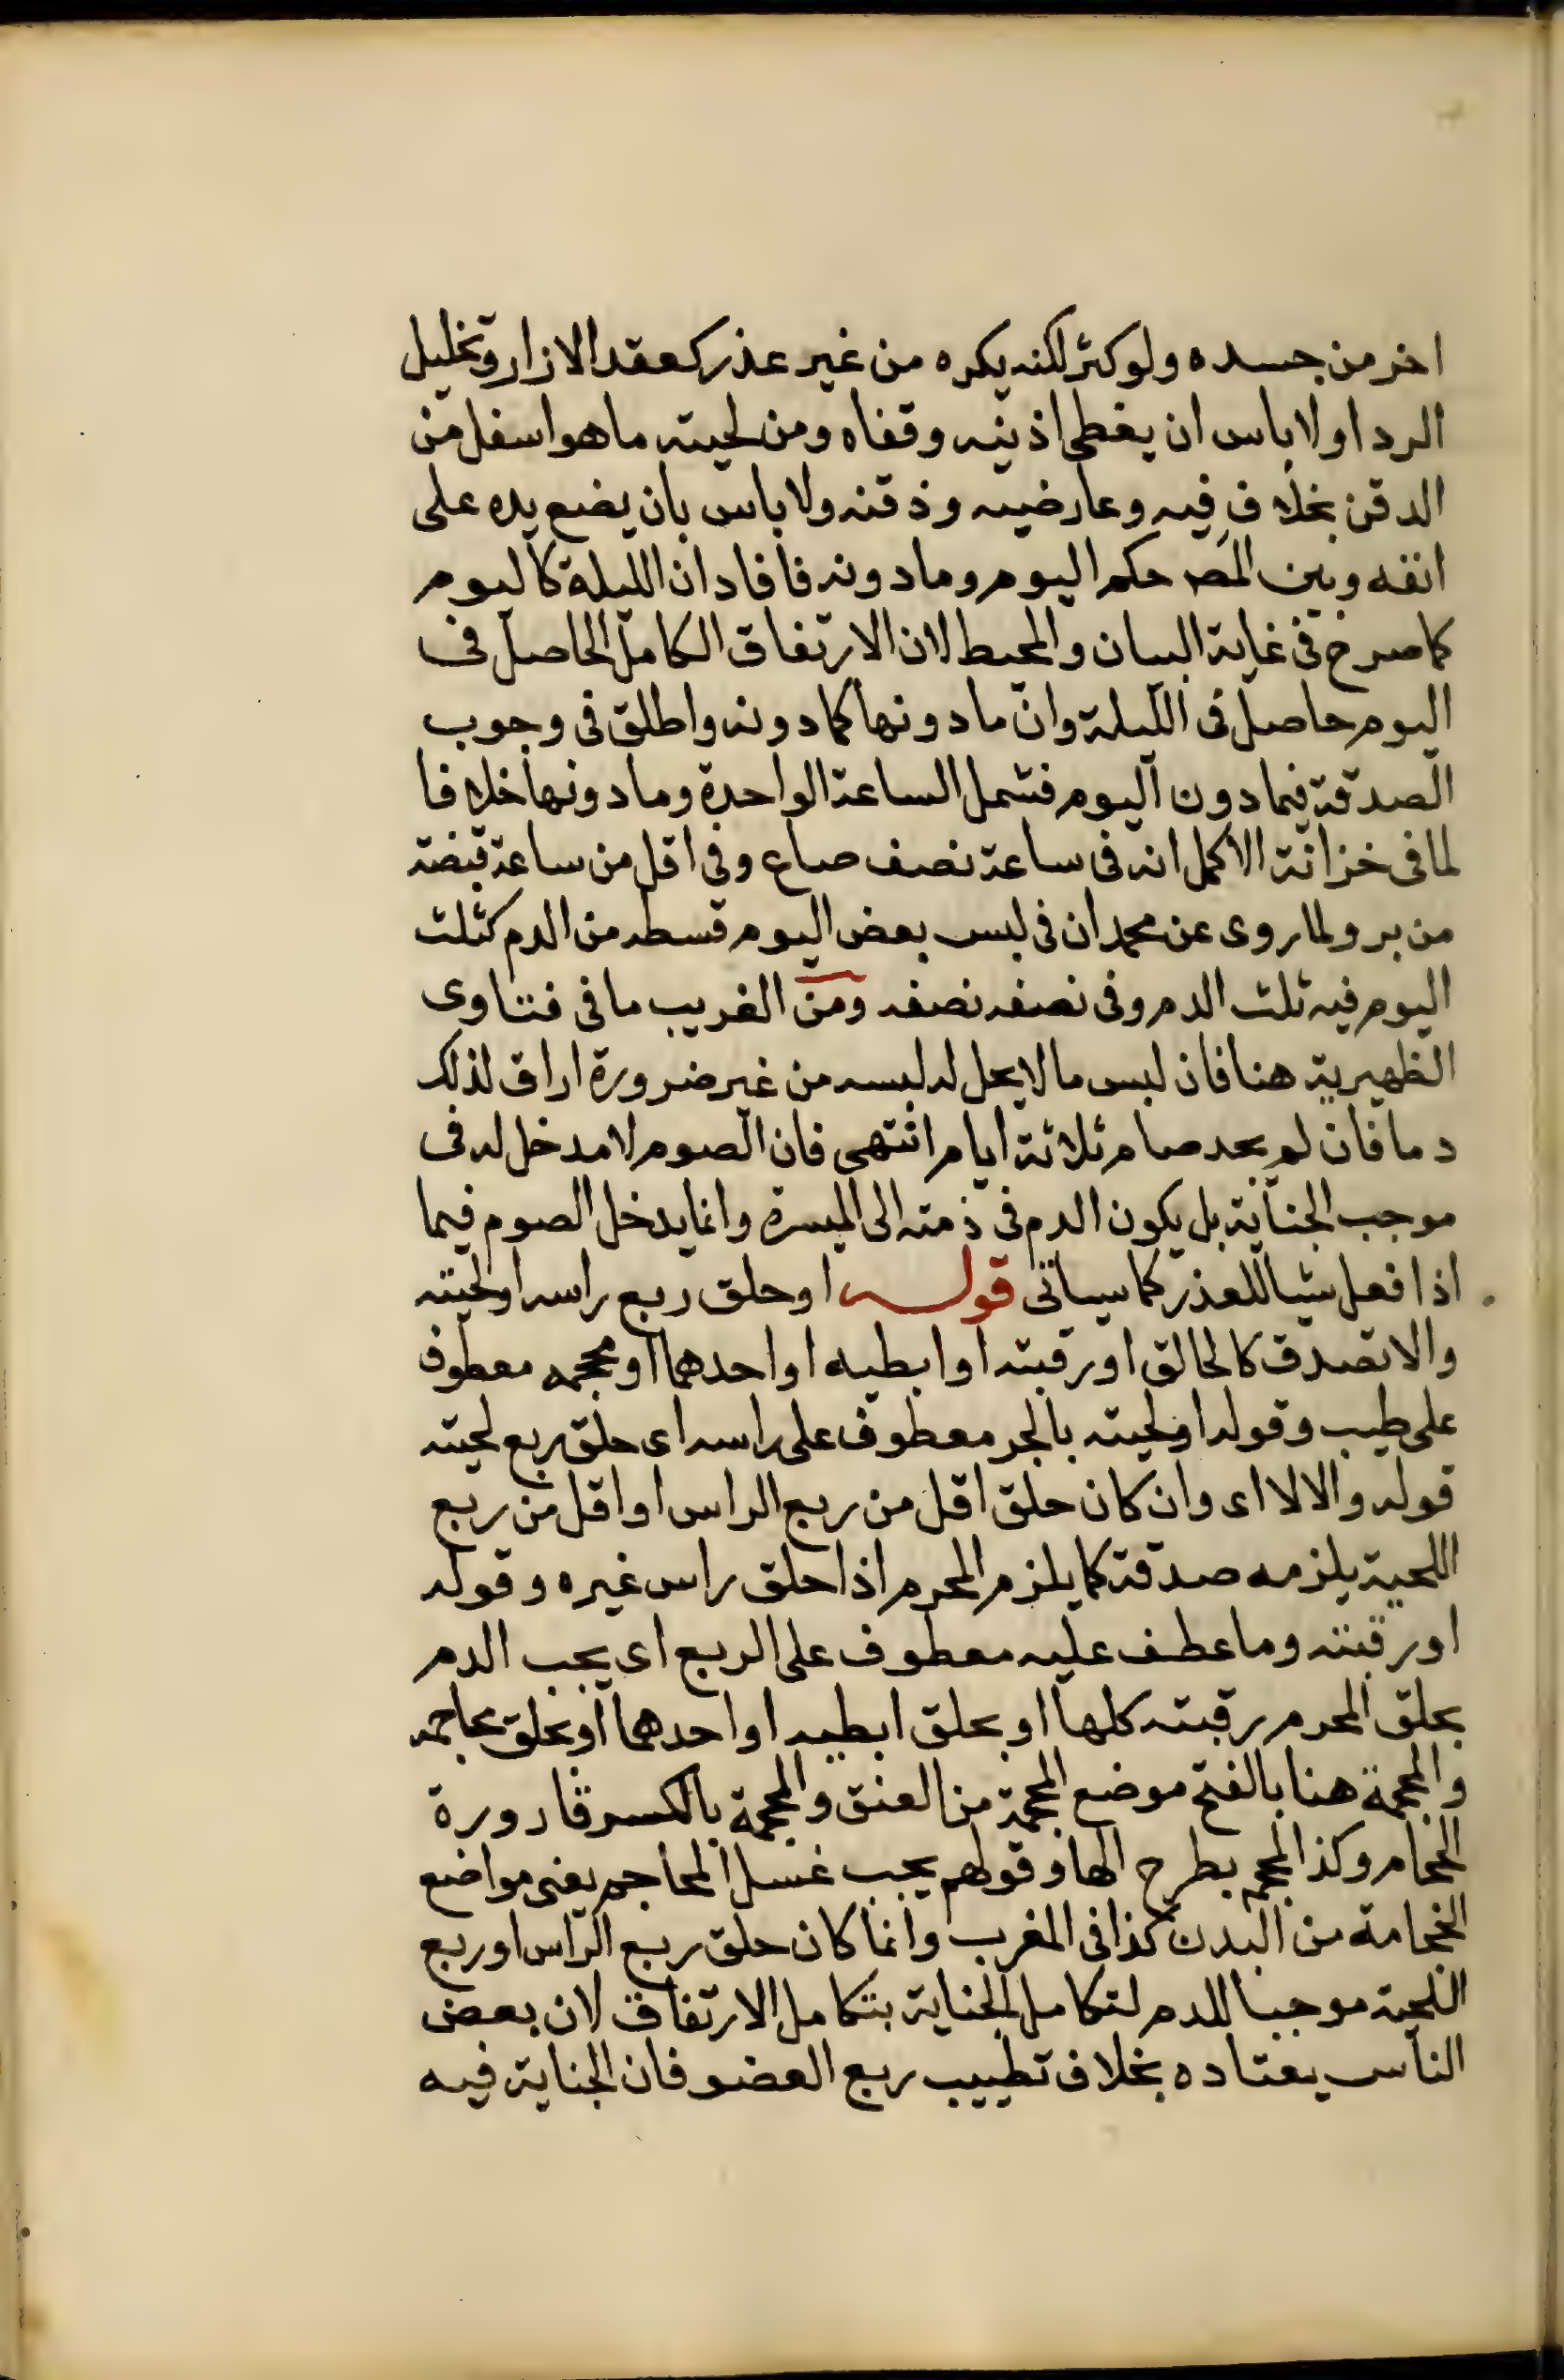 اخر من جسده ولو كثر لكنه يكره من غير عذر كعقد الازار وتخليل
الردا ولا باس ان يغطى اذنيه وقفاه ومن لحيته ما هو اسفل من
الدقن بخلاف فيه وعارضيه وذقنه ولا باس بان يضع يده على
انفه وبين المص حكم اليوم وما دونه فافاد ان الليلة كاليوم
كما صرح فى غاية البيان والمحيط لان الارتفاق الكامل الحاصل فى
اليوم حاصل فى الليلة وان ما دونها كما دونه واطلق فى وجوب
الصدقة فيما دون اليوم فشمل الساعة الواحدة وما دونها خلافا
لما فى خزانة الاكمل انه فى ساعة نصف صاع وفى اقل من ساعة قبضة
من بر ولما روى عن محمد ان فى لبس بعض اليوم قسطه من الدم كثلث
اليوم فيه ثلث الدم وفى نصفه نصفه ومن الغريب ما فى فتاوى
الظهيرية هنا فان لبس ما لا يحل له لبسه من غير ضرورة اراق لذلك
دما فان لم يجد صام ثلاثة ايام انتهى فان الصوم لا مدخل له فى
موجب الجناية بل يكون الدم فى ذمته الى الميسرة وانما يدخل الصوم فيما
اذا فعل شيا للعذر كما سياتى قوله او حلق ربع راسه او لحيته
والا تصدق كالحالق او رقبته او ابطيه او احدهما او محجمه معطوف
على طيب وقوله او لحيته بالجر معطوف على راسه اى حلق ربع لحيته
قوله والا لا اى وان كان حلق اقل من ربع الراس او اقل من ربع
اللحية يلزمه صدقة كما يلزم المحرم اذا حلق راس غيره وقوله
او رقبته وما عطف عليه معطوف على الربع اى يجب الدم
بحلق المحرم رقبته كلها او بحلق ابطيه او احدهما او بحلق محاجمه
والمحجمة هنا بالفتح موضع المحجمة من العنق والمحجمة بالكسر قارورة
الحجام وكذا المحجم بطرح الها وقولهم يجب غسل المحاجم يعنى مواضع
الحجامة من البدن كذا فى المغرب وانما كان حلق ربع الراس او ربع
اللحية موجبا للدم لتكامل الجناية بتكامل الارتفاق لان بعض
الناس يعتاده بخلاف تطييب ربع العضو فان الجناية فيه